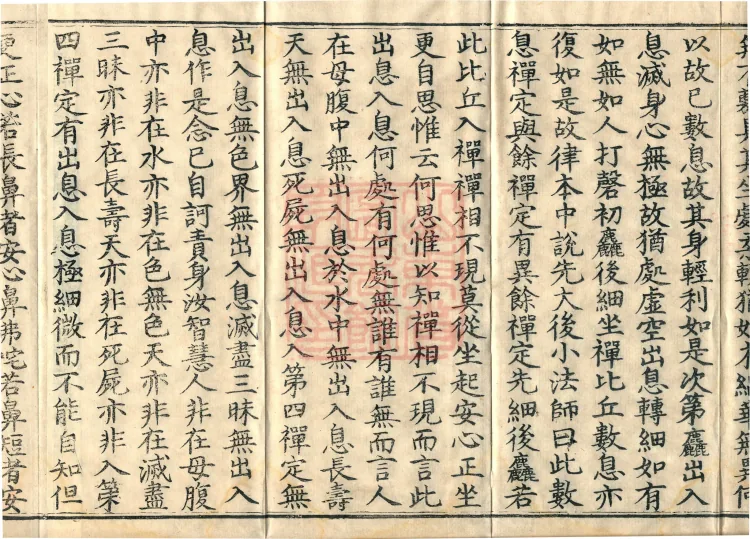 以故已數息故其身輕利如是次第麤出入
息滅身心無極故猶處虛空出息轉細如有
如無如人打磬初麤後細坐禪比丘數息亦
復如是故律本中說先大後小法師曰此數
息禪定與餘禪定有異餘禪定先細後麤若
此比丘入禪禪相不現莫從坐起安心正坐
更自思惟云何思惟以知禪相不現而言此
出息入息何處有何處無誰有誰無而言人
在母腹中無出入息於水中無出入息長壽
天無出入息死屍無出入息入第四禪定無
出入息無色界無出入息滅盡三昧無出入
息作是念已自訶責身汝智慧人非在母腹
中亦非在水亦非在色無色天亦非在滅盡
三昧亦非在長壽天亦非在死屍亦非入第
四禪定有出息入息極細微而不能自知但
更正心若長鼻者安心鼻弗咤若鼻短者安